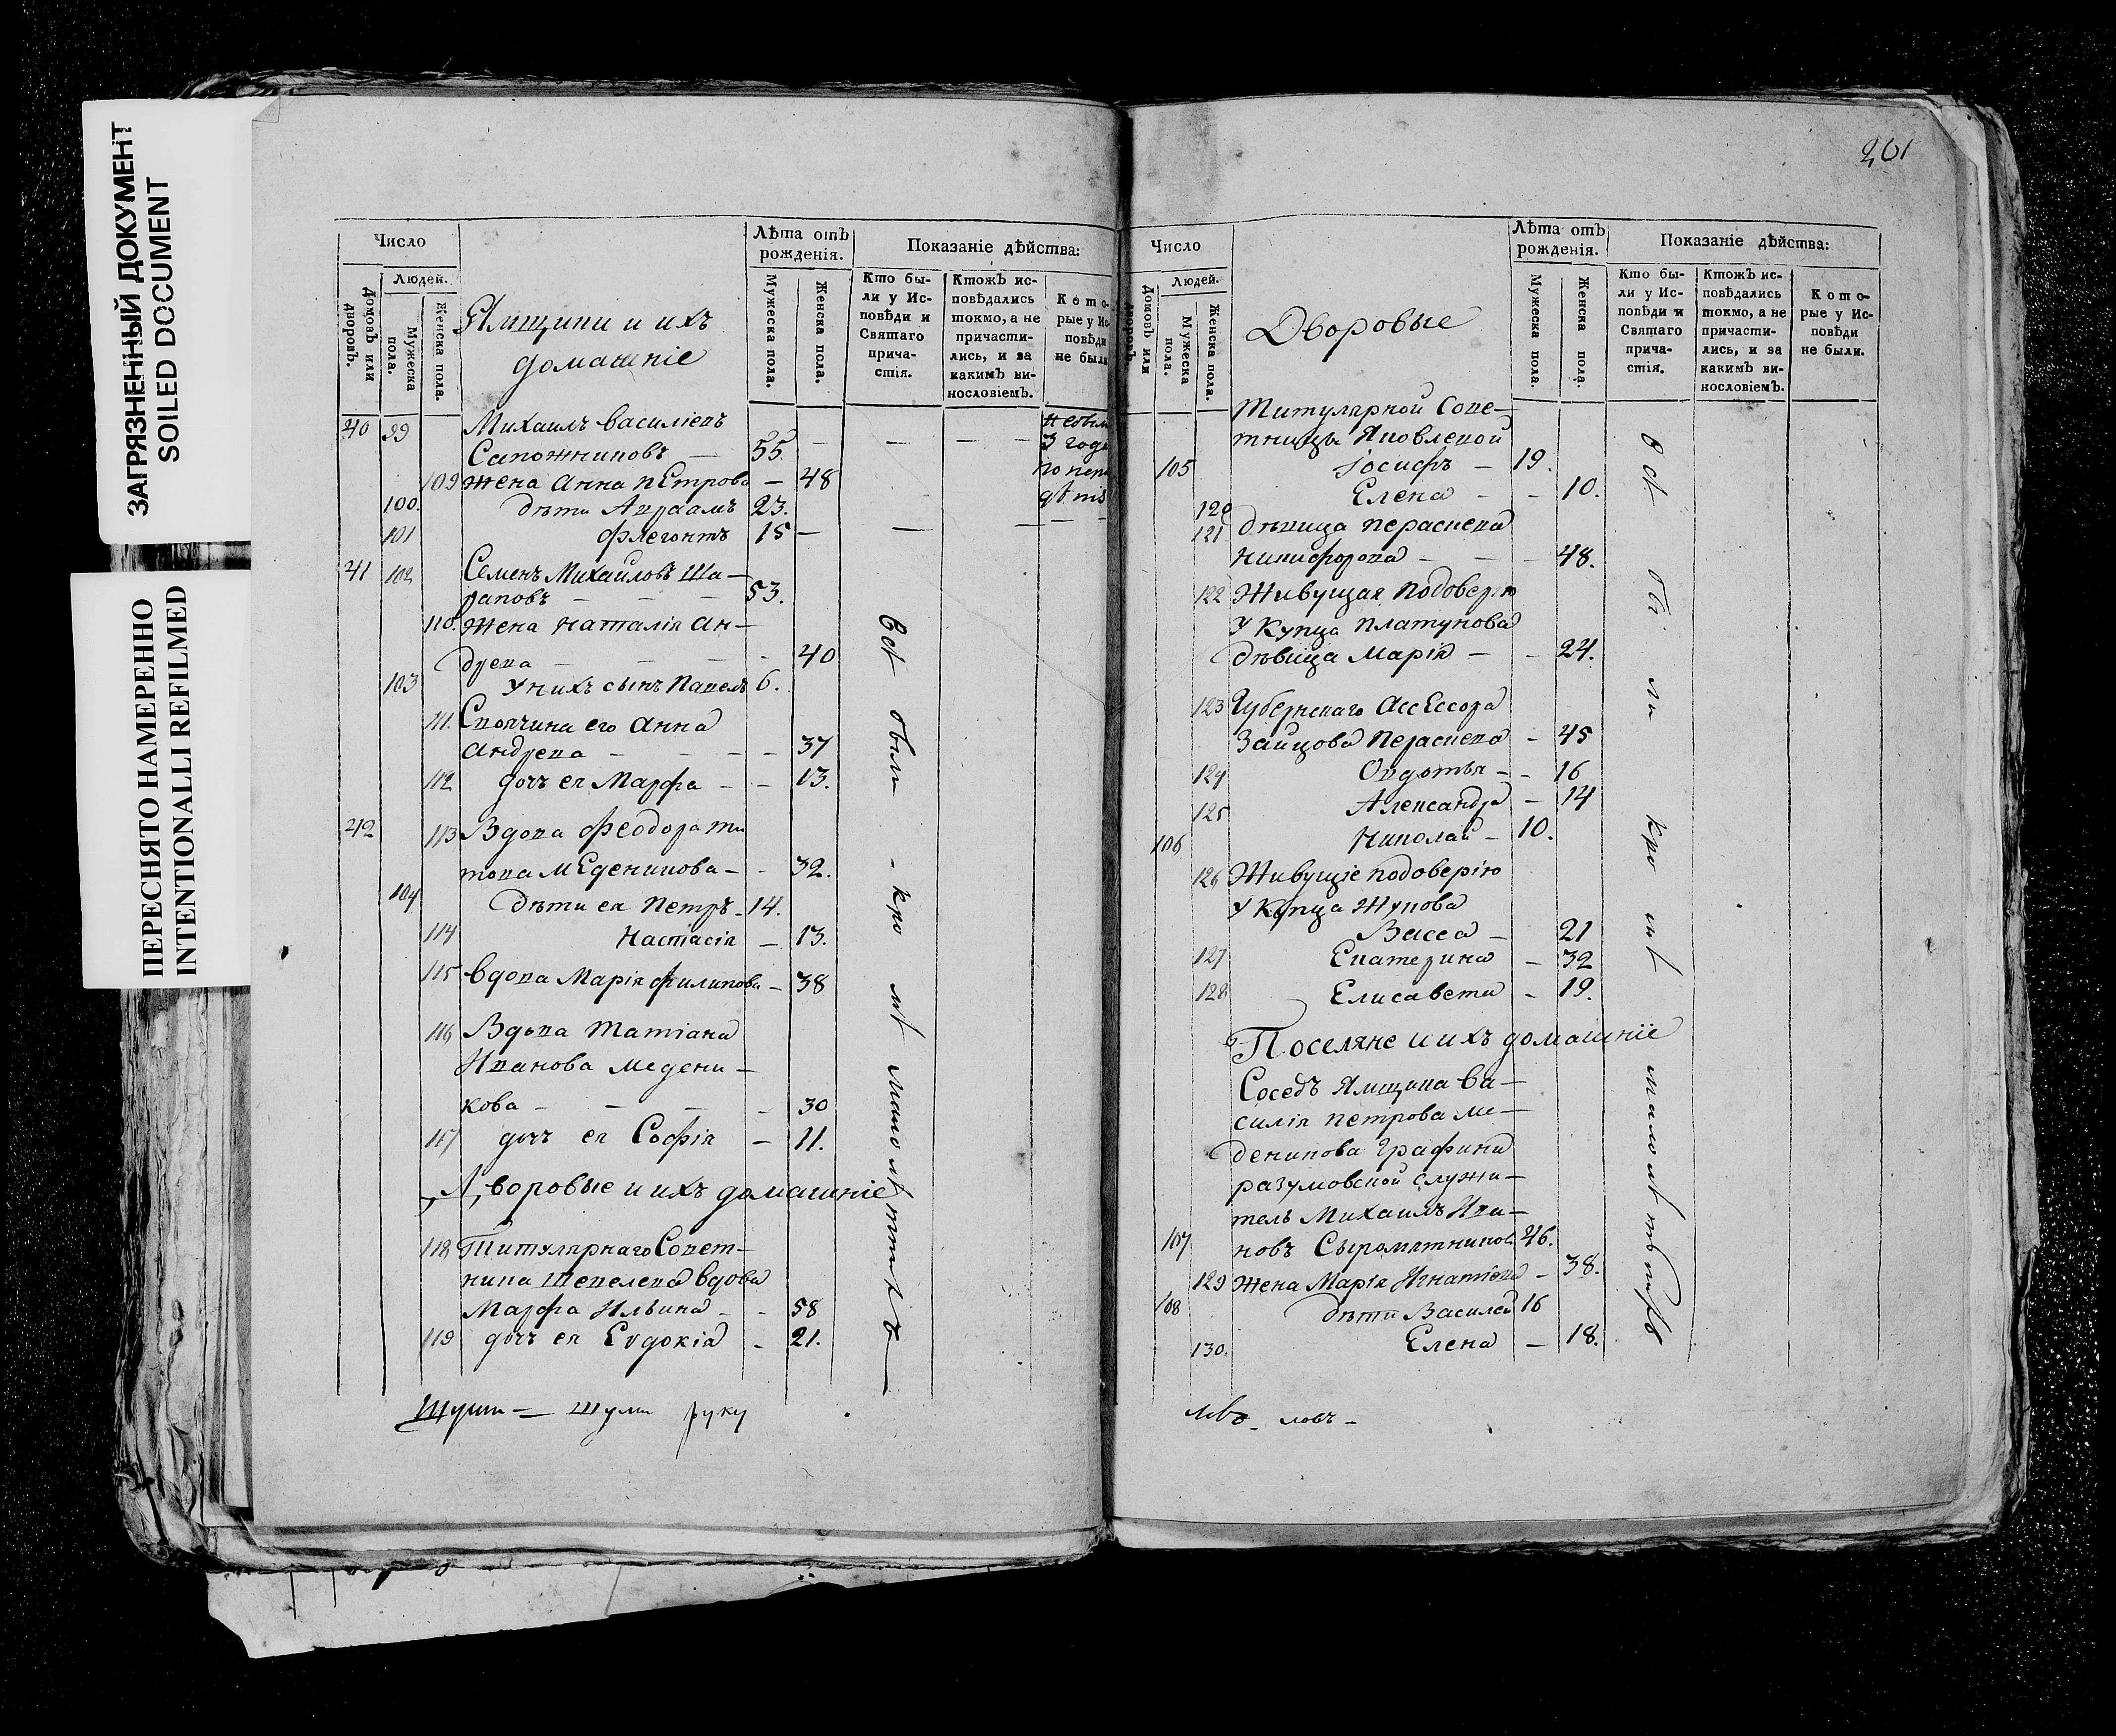 ЗАГРЯЗНЕННЫЙ ДОКУМЕНТ
SOILED DOCUMENT
ПЕРЕСНЯТО НАМЕРЕННО
INTENTIONALLI REFILMED
Число
Людей.
Домовъ или дворовъ.
Мужеска пола.
Женска пола.
Ямщики и ихъ
домашніе
Лѣта отъ
рожденія.
Мужеска пола.
Женска пола.
Показаніе дѣйства:
Кто бы-
ли у Ис-
повѣди и
Святаго
прича-
стія.
Ктожъ ис-
повѣдались
токмо, а не
причасти-
лись, и за
какимъ ви-
нословіемъ.
Кото-
рые у Ис
повѣди
не были
40 99 Михаилъ Василіевъ
Сапожниковъ — 55. — — — —
3 года
109 жена Анна Петрова — 48
100. дѣти Авраамъ 23.
101 Флегонтъ 15 — — —
41 102 Семенъ Михаиловъ Ша-
раповъ — — — 53.
110. жена Наталія Ан-
древа — — — - 40
103 у нихъ сынъ Павелъ 6.
111. Своячина его Анна
Андрева — — — - 37
112 дочь ея Марфа — - 13.
42 113 Вдова Феодора Ти
това Меденикова - - 32.
104 дѣти ея Петръ - 14.
114 Настасія — 13.
115 Вдова Марія Филипова - 38
116 Вдова Татіана
Иванова Медени-
кова — — — - 30
117 дочь ея Софія — 11.
Дворовые и ихъ домашніе
118 Титулярнаго Совет-
ника Шевелева вдова
Марфа Ильина - - 58
119 дочь ея Евдокіа - 21.
всѣ были - кро мѣ малолѣтныхъ
руку
201
Число
Людей.
Домовъ или дворовъ
Мужеска пола.
Женска пола.
Дворовые
Лѣта отъ
рожденія.
Мужеска пола.
Женска пола.
Показаніе дѣйства:
Кто бы-
ли у Ис-
повѣди и
Святаго
прича-
стія.
Ктожъ ис-
повѣдались
токмо, а не
причасти-
лись, и за
какимъ ви-
нословіемъ.
Кото-
рые у Ис-
повѣди
не были.
Титулярной Сове-
тницы Яковлевой
105 Іосифъ — 19.
120 Елена - - 10.
121 дѣвица Параскева
Никифорова — — - 48.
122 Живущая по доверію
у купца Платунова
дѣвица Марія — - 24.
123 Губернскаго Ассессора
Зайцова Параскева - 45
124 Овдотья - - 16
125 Александра - 14
106 Николай - 10.
126 Живущіе по доверію
у Купца Жукова
Васса — 21
127 Екатерина - 32
128 Елисавета - 19.
Поселяне и ихъ домашніе
Соседъ Ямщика Ва-
силія Петрова Ме-
деникова Графини
разумовской служи-
тель Михаилъ Ива-
107 новъ Сыромятников 46.
129 жена Марія Игнатіева - 38.
108 дѣти Василей 16
130. Елена — 18.
всѣ бы ли кро мѣ
ловъ -